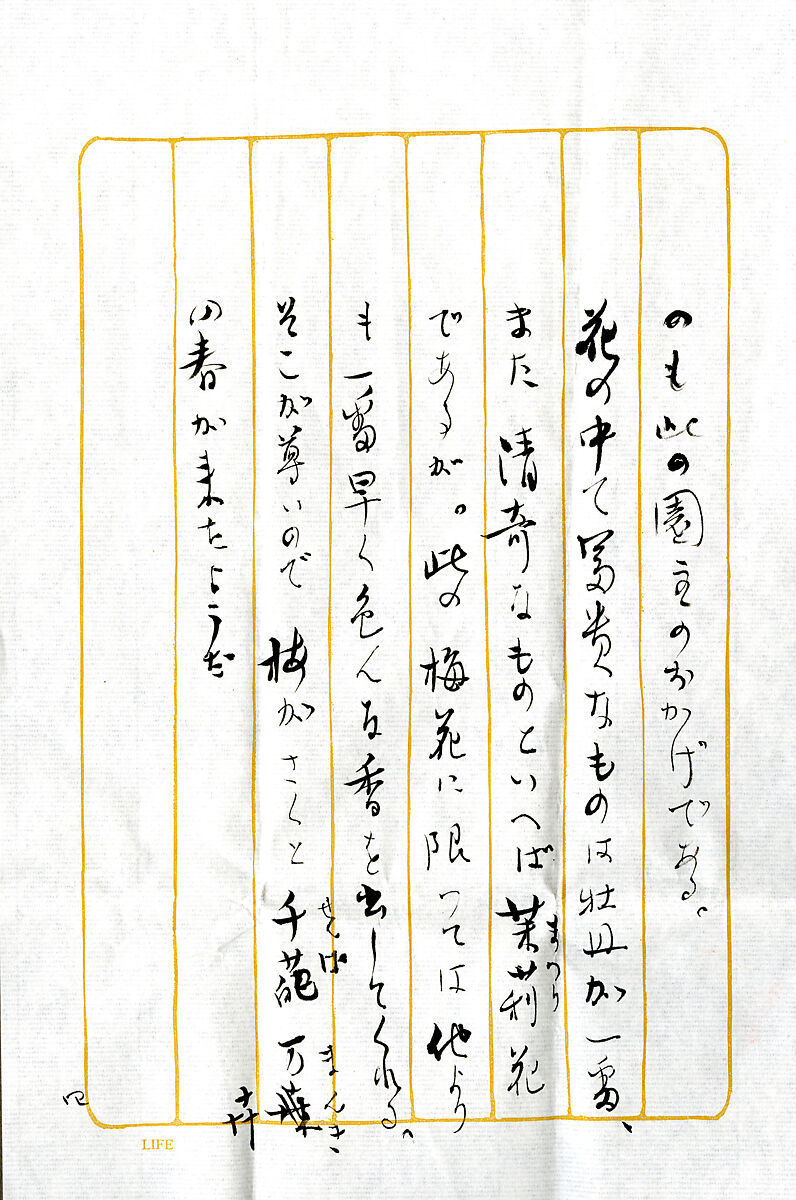 のも此の園主のおかげである。
花の中で富貴なものは牡丹が一番、
また清奇なものといへば茉莉花
まつり
であるが。此の梅花に限つては他より
も一番早く色んな香を出してくれる。
そこが尊いので梅がさくと千葩万
せんぱ まんき
卉
の春が来たようだ
四
LIFE